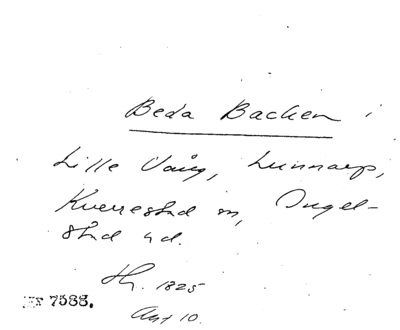 Beda Backen i
Lille Vång, Lunnarp,
Kverrestad sn, Ingel-
stad hd.
Th. 1825
Avt 10.
7588.